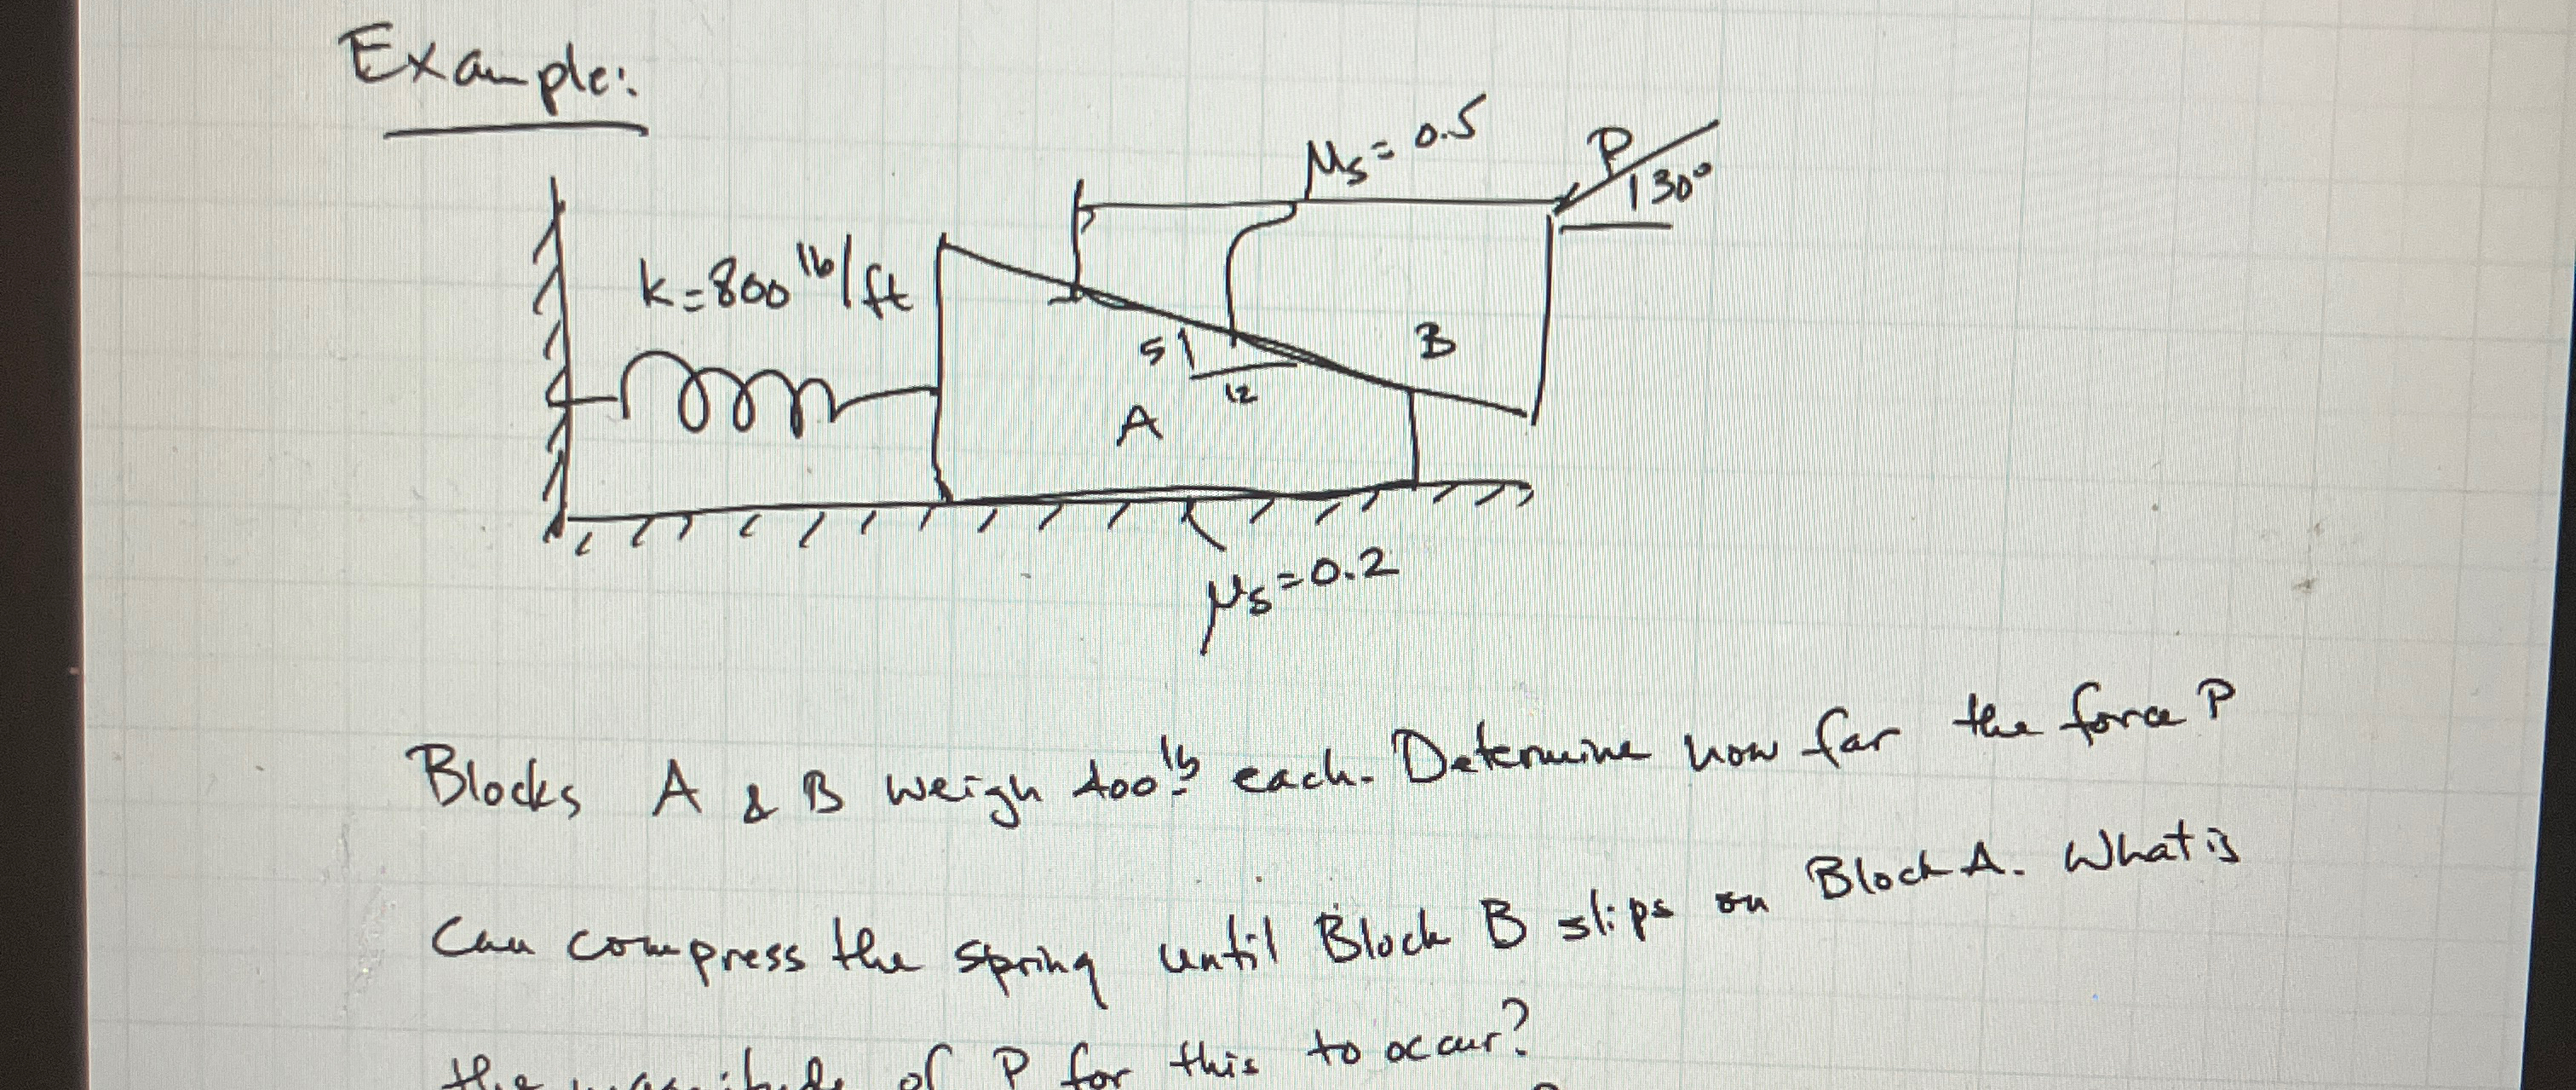 Example:
μs = 0.5
P
30°
k=800 lb/ft
5
12
B
A
μs=0.2
Blocks A & B weigh 400 lb each. Determine how far the force P
Can compress the spring until Block B slips on Block A. What is
the magnitude of P for this to occur?